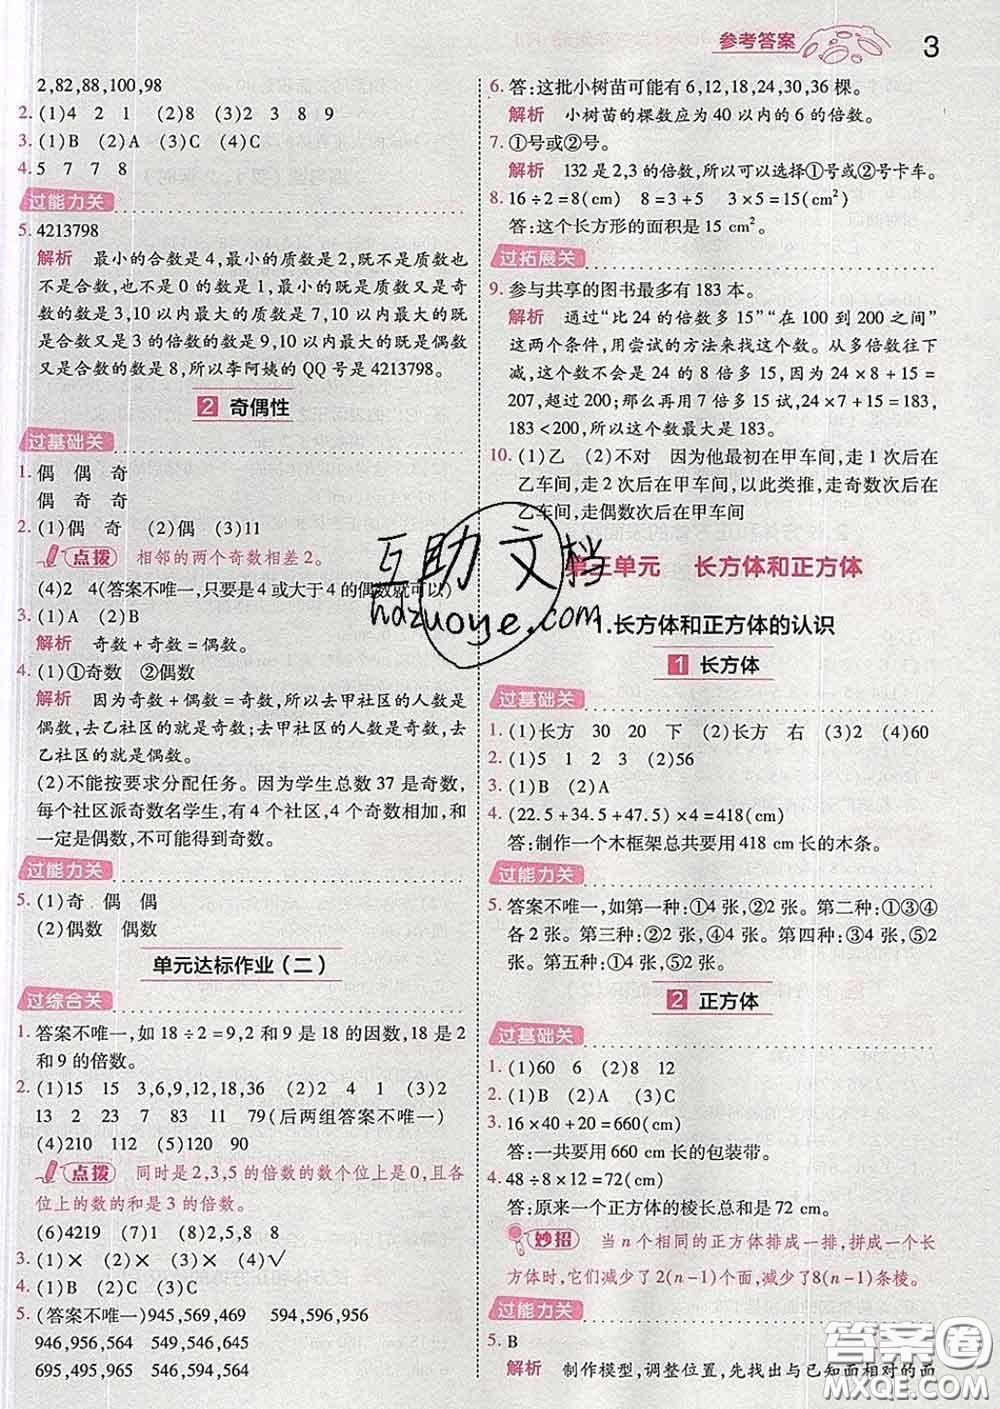 参考答案
3
2,82,88,100,98
2. (1)4 2 1 (2)8 (3)2 3 8 9
3. (1)B (2)A (3)C (4)C
4. 5 7 7 8
过能力关
5. 4213798
解析 最小的合数是4,最小的质数是2,既不是质数也不是合数,也不是0的数是1,最小的既是质数又是奇数的数是3,10以内最大的质数是7,10以内最大的既是合数又是3的倍数的数是9,10以内最大的既是偶数又是合数的数是8,所以李阿姨的QQ号是4213798。
2 奇偶性
过基础关
1. 偶 偶 奇
偶 奇 奇
2. (1)偶 奇 (2)偶 (3)11
点拨 相邻的两个奇数相差2。
(4)2 4(答案不唯一,只要是4或大于4的偶数就可以)
3. (1)A (2)B
解析 奇数+奇数=偶数。
4. (1)①奇数 ②偶数
解析 因为奇数+偶数=奇数,所以去甲社区的人数是偶数,去乙社区的就是奇数;去甲社区的人数是奇数,去乙社区的就是偶数。
(2)不能按要求分配任务。因为学生总数37是奇数,每个社区派奇数名学生,有4个社区,4个奇数相加,和一定是偶数,不可能得到奇数。
过能力关
5. (1)奇 偶 偶
(2)偶数 偶数
单元达标作业(二)
过综合关
1. 答案不唯一,如18÷2=9,2和9是18的因数,18是2和9的倍数。
2. (1)15 15 3,6,9,12,18,36 (2)2 4 1 (3)2
13 2 23 7 83 11 79(后两组答案不唯一)
(4)210 112 (5)120 90
点拨 同时是2,3,5的倍数的数个位上是0,且各位上的数的和是3的倍数。
(6)4219 (7)1 (8)2,5,8 8
3. (1)× (2)× (3)× (4)√
4. (1)B (2)C (3)C
5. (答案不唯一)945,569,469 594,596,956
946,956,564 549,546,645
695,495,965 694,496,564
6. 答:这批小树苗可能有6,12,18,24,30,36棵。
解析 小树苗的棵数应为40以内的6的倍数。
7. ①号或②号。
解析 132是2,3的倍数,所以可以选择①号或②号卡车。
8. 16÷2=8(cm) 8=3+5 3×5=15(cm²)
答:这个长方形的面积是15 cm²。
过拓展关
9. 参与共享的图书最多有183本。
解析 通过“比24的倍数多15”“在100到200之间”这两个条件,用尝试的方法来找这个数。从多往下减,这个数不会是24的8倍多15,因为24×8+15=207,超过200;那么再用7倍多15试,24×7+15=183,183<200,所以这个数最大是183。
10. (1)乙 (2)不对 因为他最初在甲车间,走1次后在乙车间,走2次后在甲车间,以此类推,走奇数次后在乙车间,走偶数次后在甲车间
第三单元 长方体和正方体
1.长方体和正方体的认识
1 长方体
过基础关
1. (1)长方 30 20 下 (2)长方 右 (3)2 (4)60
2. (1)5 1 2 3 (2)56
3. (1)B (2)A
4. (22.5+34.5+47.5)×4=418(cm)
答:制作一个木框架总共要用418 cm长的木条。
过能力关
5. 答案不唯一,如第一种:①4张,②2张。第二种:①③④各2张。第三种:②2张,④4张。第四种:④4张,⑤2张。第五种:①2张,⑤4张。
2 正方体
过基础关
1. (1)60 6 (2)8 12
2. (1)B (2)A (3)C
3. 16×40+20=660(cm)
答:一共要用660 cm长的包装带。
4. 48÷8×12=72(cm)
答:原来一个正方体的棱长总和是72 cm。
妙招 当n个相同的正方体排成一排,拼成一个长方体时,它们减少了2(n-1)个面,减少了8(n-1)条棱。
过能力关
5. B
解析 制作模型,调整位置,先找出与已知面相对的面
互助文档
hdzuoye.com
答案圈
MXQE.COM